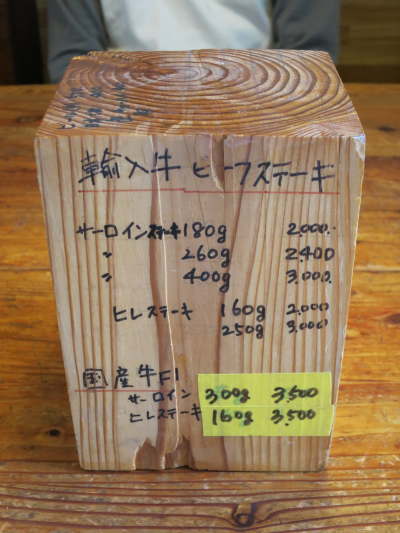 輸入牛 ビーフステーキ
サーロインステーキ 180g 2,000.
〃 260g 2,400
〃 400g 3,000.
ヒレステーキ 160g 2,000
250g 3,000
国産牛F1
サーロイン 300g 3,500
ヒレステーキ 160g 3,500